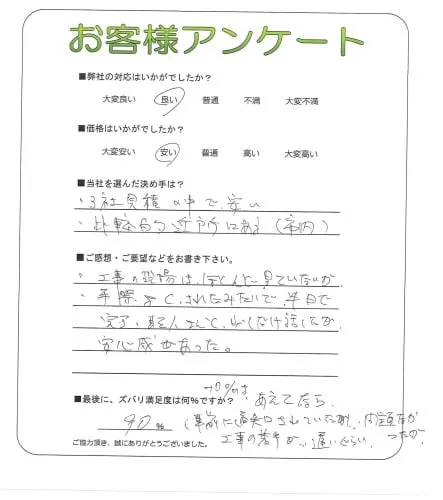 お客様アンケート
■弊社の対応はいかがでしたか？
大変良い 良い 普通 不満 大変不満
■価格はいかがでしたか？
大変安い 安い 普通 高い 大変高い
■当社を選んだ決め手は？
・3社見積の中で、安い
・比較的近所にある（市内）
■ご感想・ご要望などをお書き下さい。
・工事の現場は、ほとんど見ていないが
・手際よく、されたみたいで、半日で
完了・職人さんと、少しだけ話したが、
安心感があった。
■最後に、ズバリ満足度は何％ですか？
-10％は、あえてなら、
90％
（事前に
されていたが、内容
工事の着手が、遅いぐらい、
ご協力頂き、誠にありがとうございました。